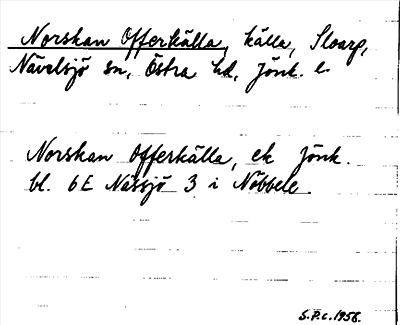 Norskan Offerkälla, källa, Sloarp,
Nävelsjö sn, Östra hd, Jönk. l.
Norskan Offerkälla, ek Jönk.
bl. 6E Nässjö 3 i Nöbbele.
S.P.C. 1956.